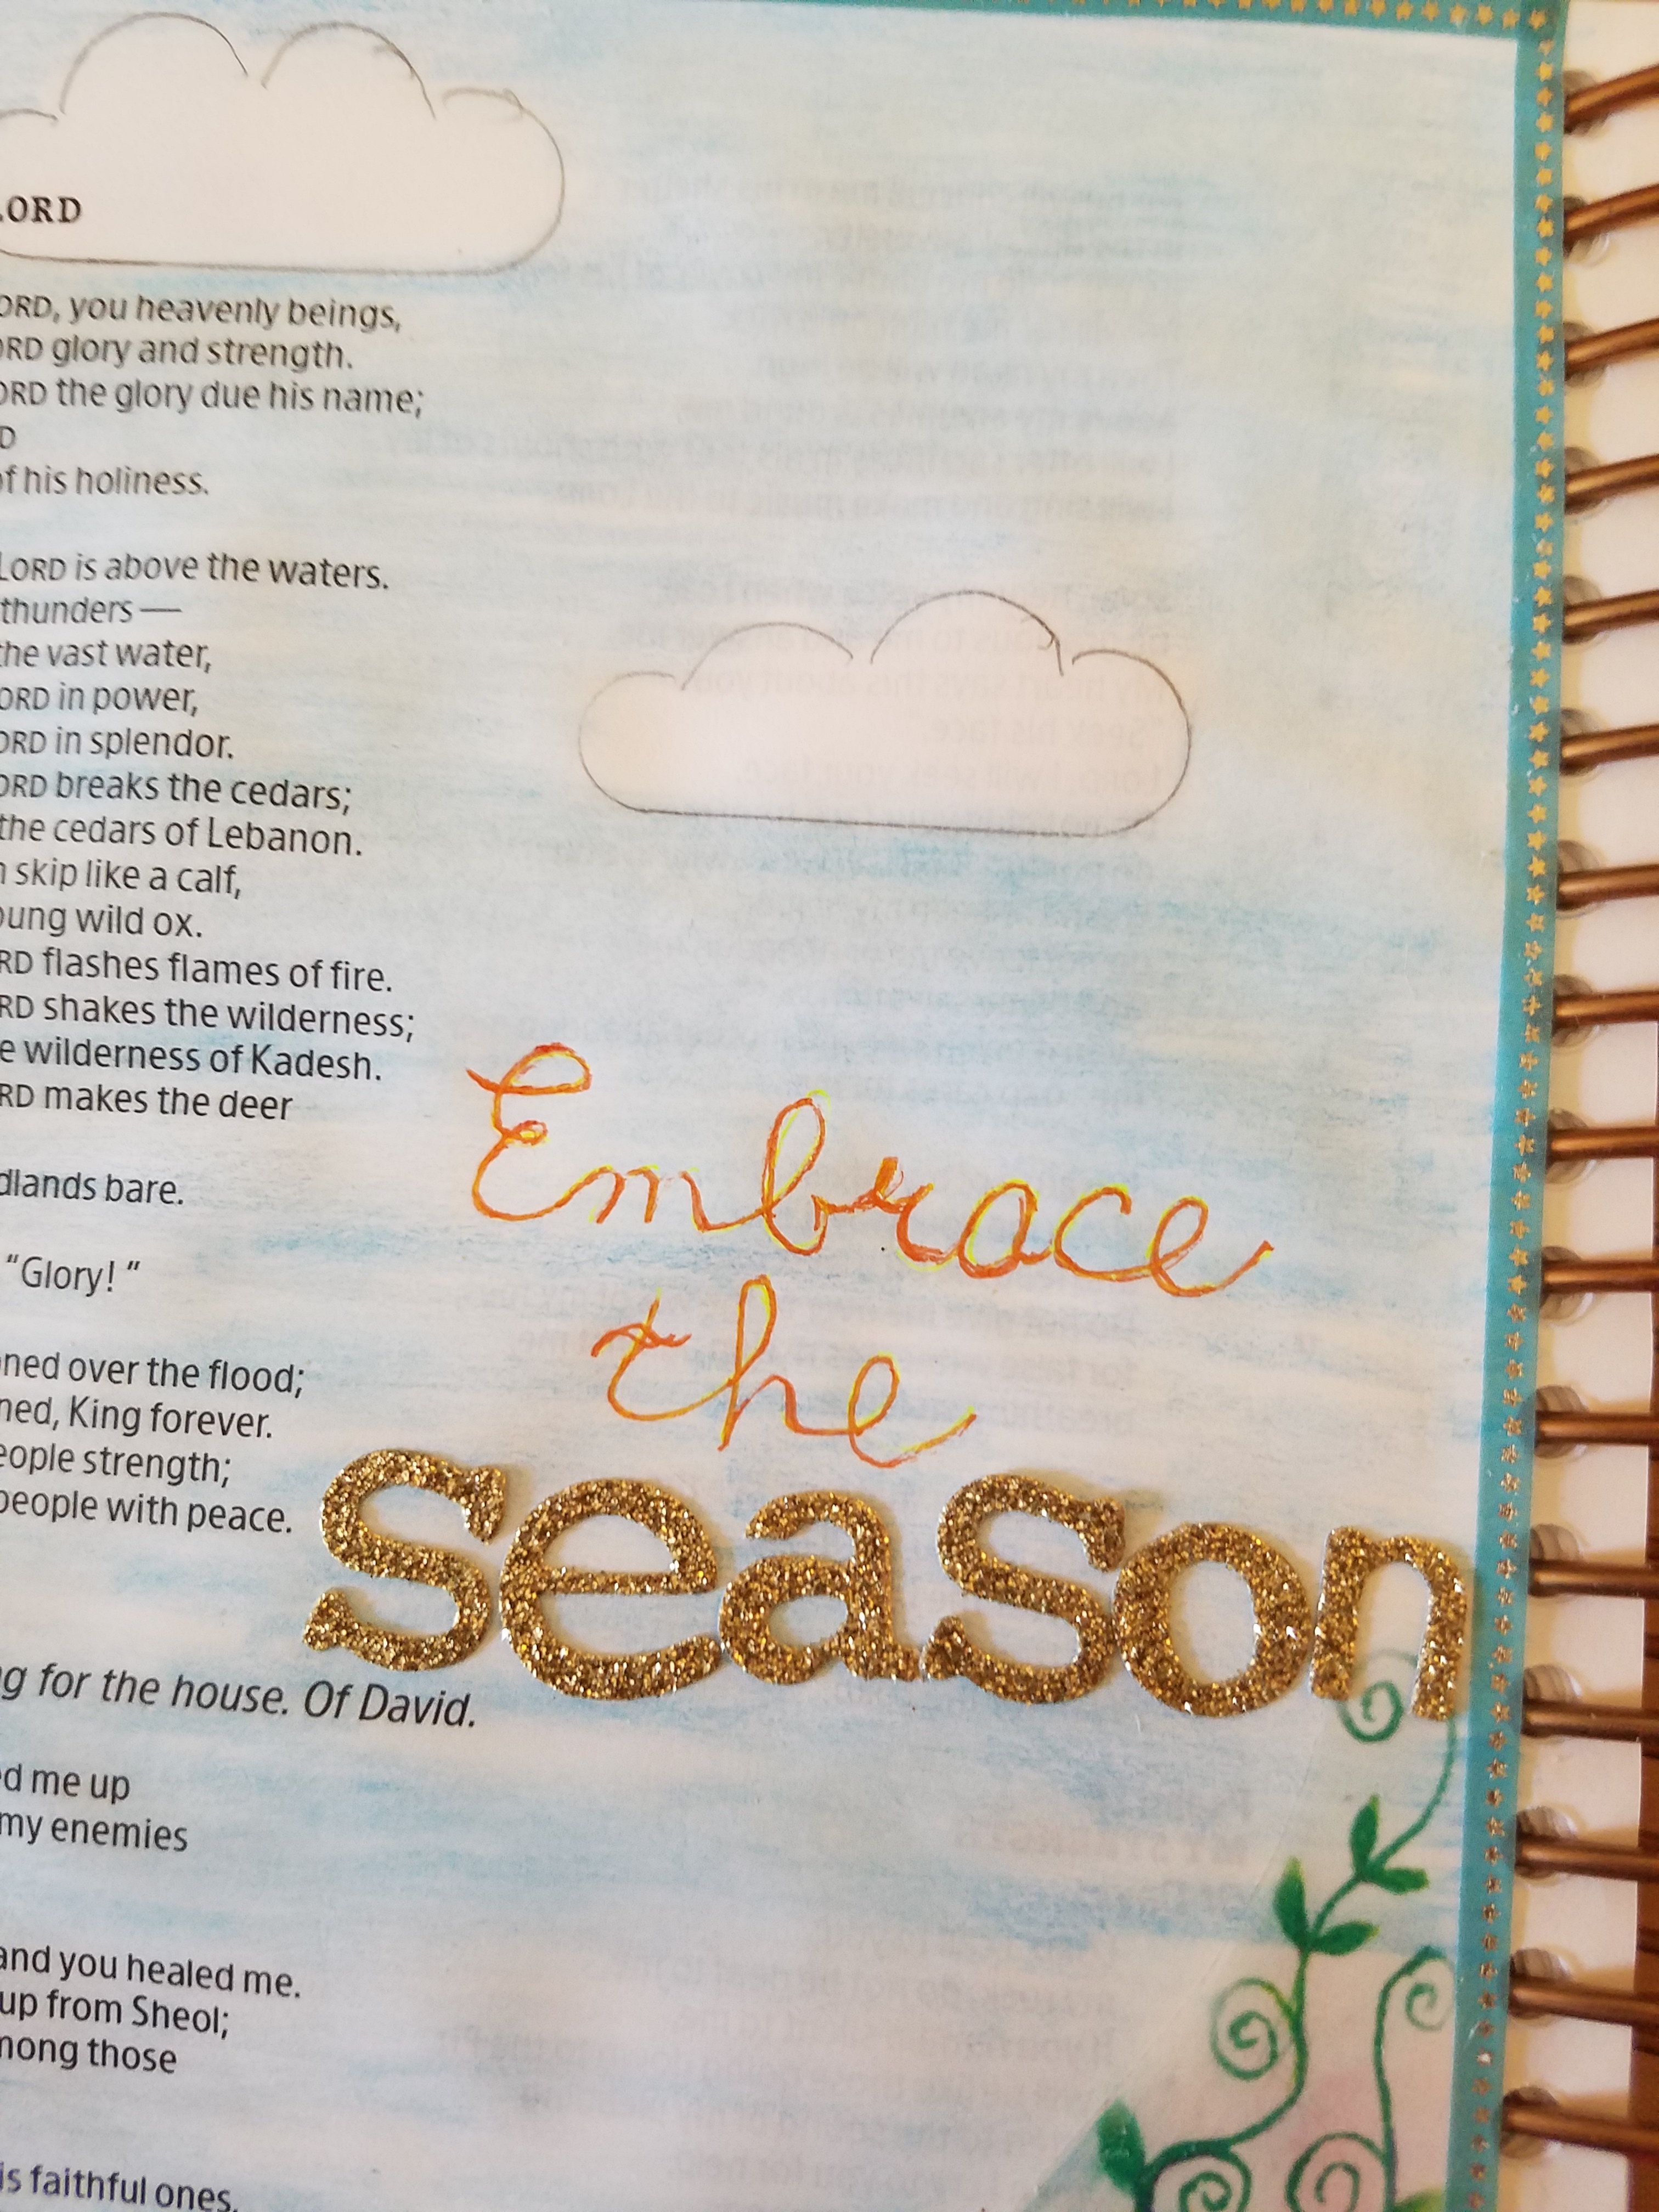 LORD
LORD, you heavenly beings,
LORD glory and strength.
LORD the glory due his name;
of his holiness.
LORD is above the waters.
thunders —
the vast water,
LORD in power,
LORD in splendor.
LORD breaks the cedars;
the cedars of Lebanon.
skip like a calf,
wild ox.
flashes flames of fire.
shakes the wilderness;
wilderness of Kadesh.
makes the deer
bare.
“Glory! “
over the flood;
King forever.
strength;
people with peace.
Embrace
the
season
for the house. Of David.
me up
my enemies
and you healed me.
up from Sheol;
those
faithful ones,